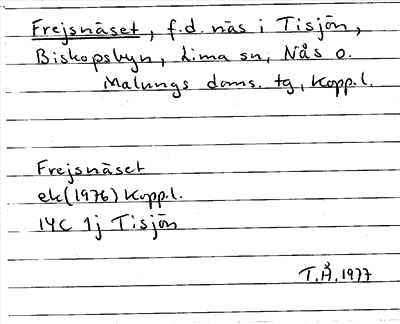 Frejsnäset, f.d. näs i Tisjön,
Biskopsbyn, Lima sn, Nås o.
Malungs doms. tg, Kopp.l.
Frejsnäset
ek(1976) Kopp.l.
14C 1j Tisjön
T.Å. 1977